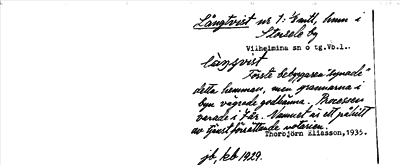 Långtvist nr 1: Gantl, hmn i
Storsele by
Vilhelmina sn o tg.Vb.l..
långvist
Förste bebyggaren "synade"
detta hemman, men grannarna i
byn vägrade godkänna. Processen
varade i 7 år. Namnet är ett påhitt
av tjänstförrättande notarien.
Thorbjörn Eliasson, 1935.
jb, kb 1929.